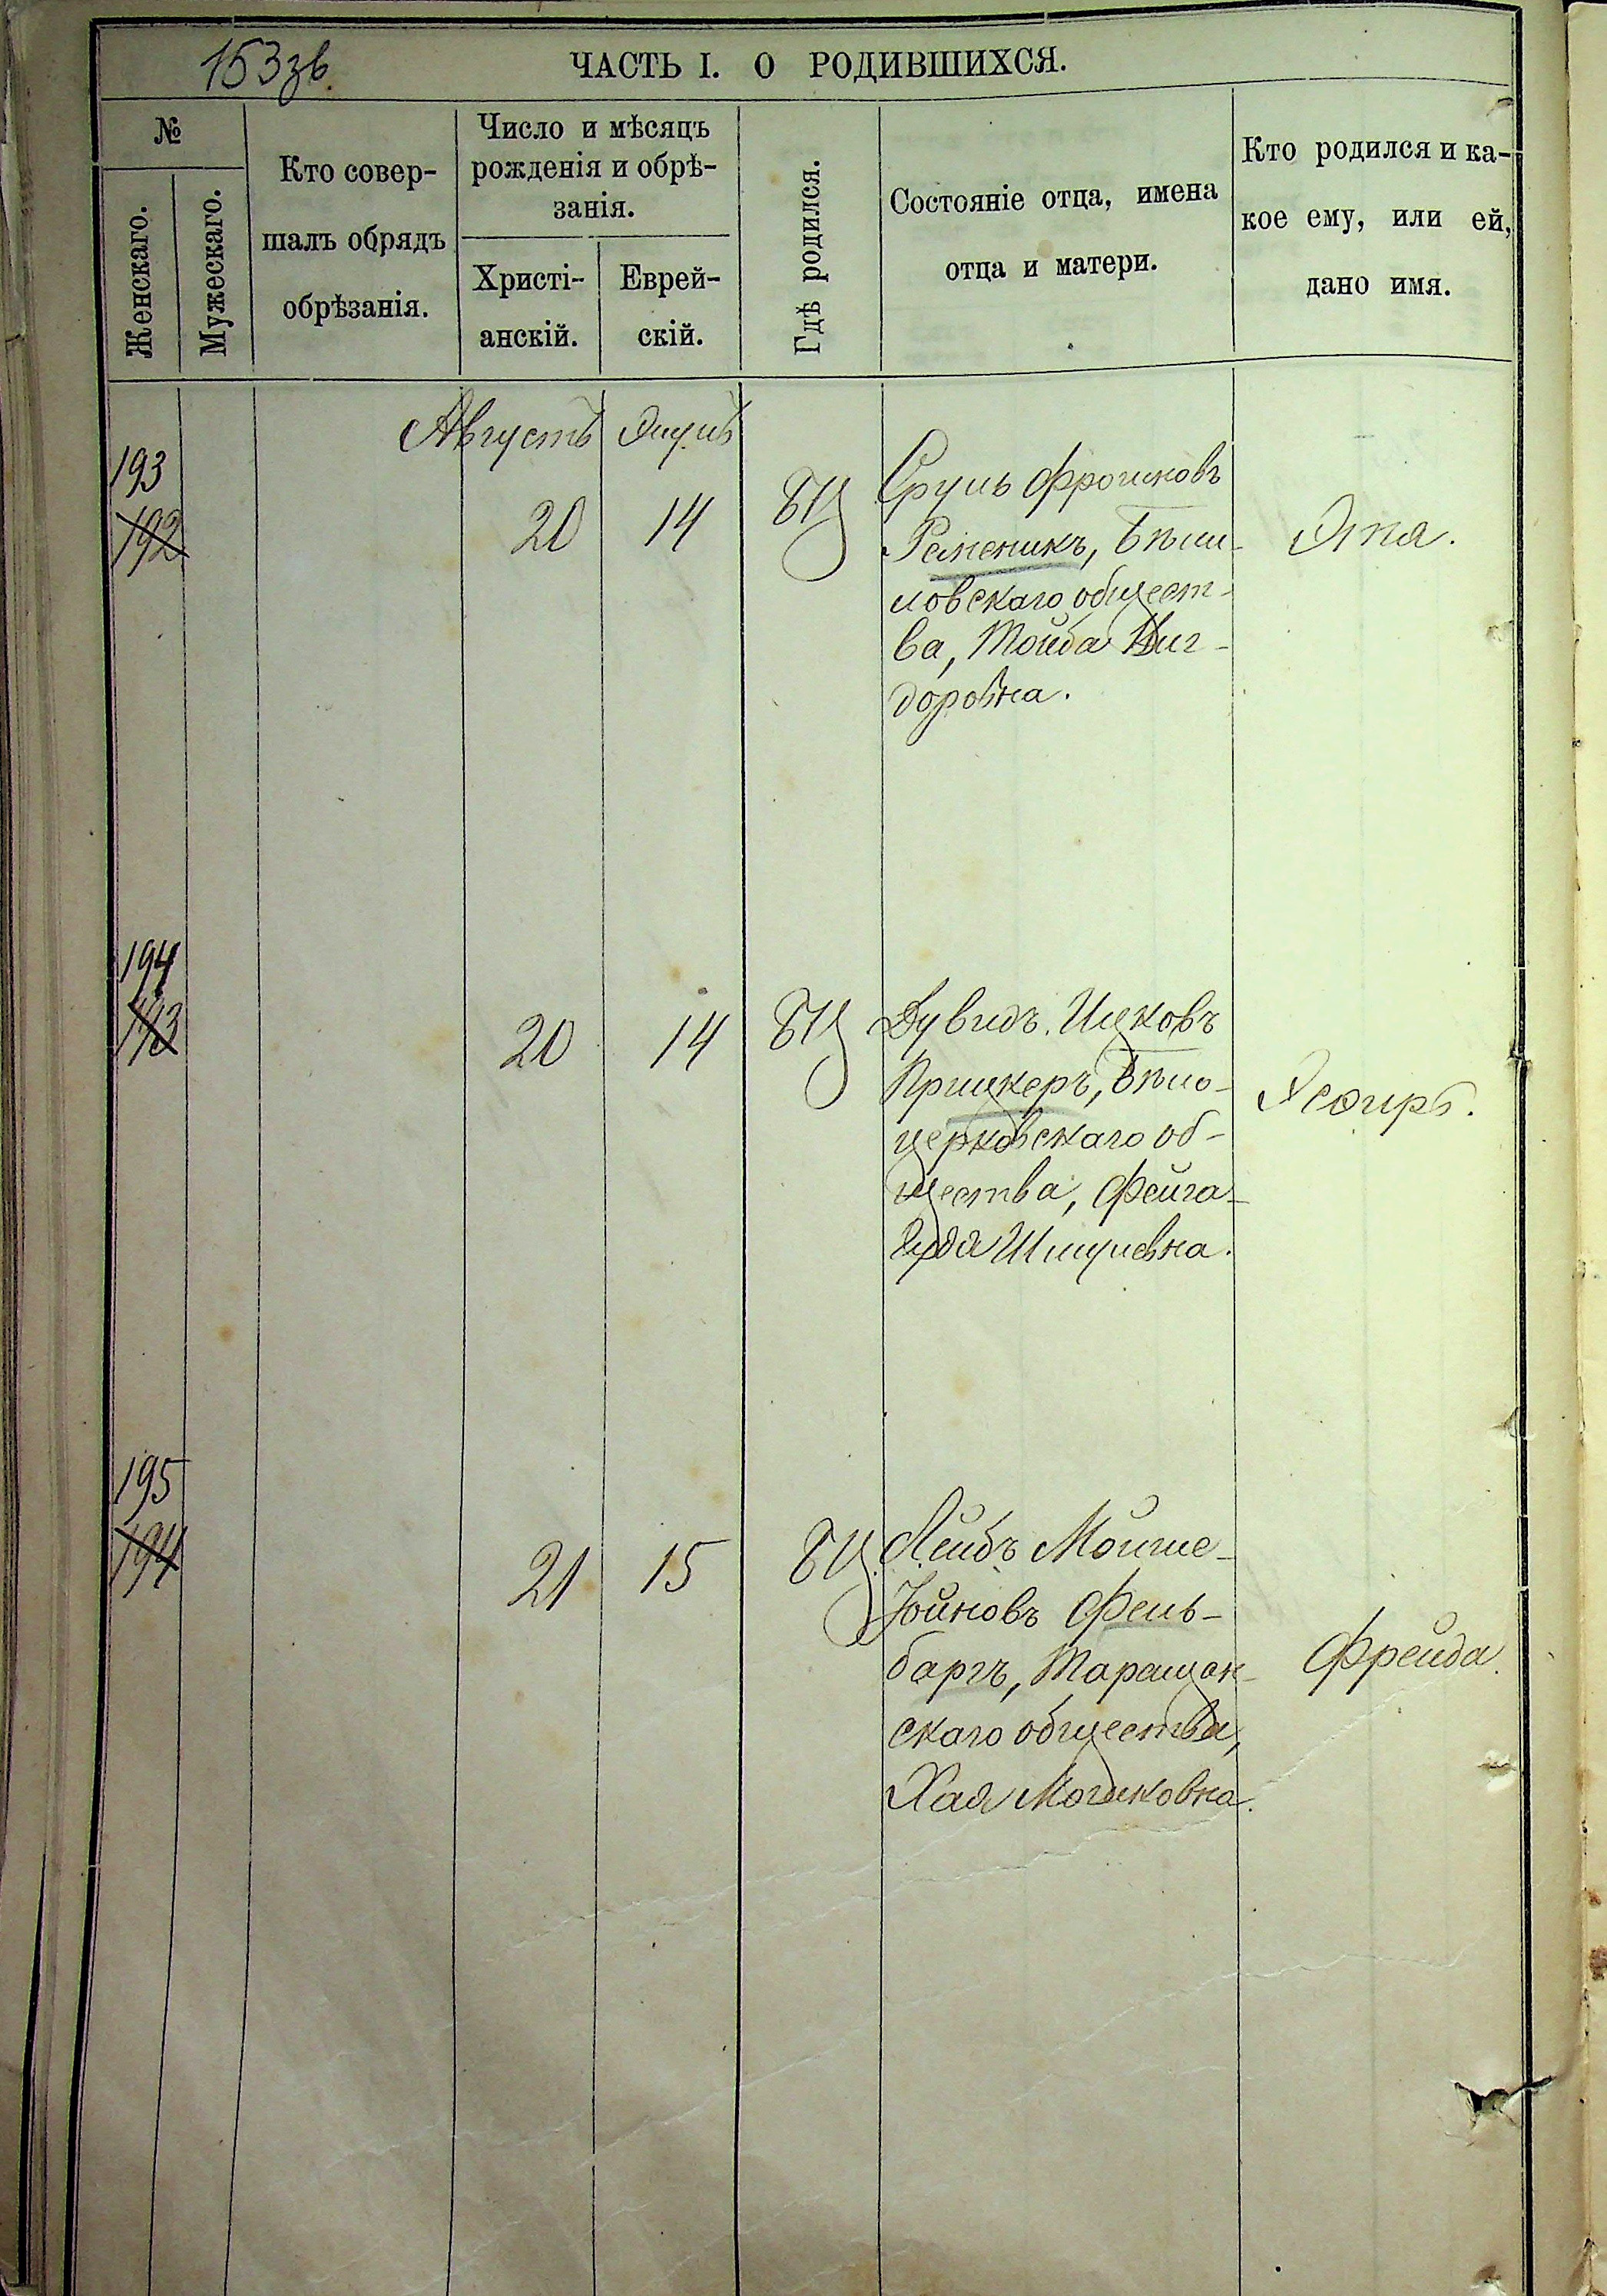 153зв.
ЧАСТЬ I. О РОДИВШИХСЯ.
№
Женскаго.
Мужескаго.
Кто совер-
шалъ обрядъ
обрѣзанія.
Число и мѣсяцъ
рожденія и обрѣ-
занія.
Христі-
анскій.
Еврей-
скій.
Гдѣ родился.
Состояніе отца, имена
отца и матери.
Кто родился и ка-
кое ему, или ей,
дано имя.
Августъ Элулъ
193
192
20 14 БЦ
Сруль Фроимовъ
Ременикъ, Бѣли-
ловскаго общест-
ва, Тойба Виг-
доровна.
Этя.
194
193
20 14 БЦ
Дувидъ Ицковъ
Прицкеръ, Бѣло-
церковскаго об-
щества, Фейга-
Гудя Шмулевна.
Эсѳирь.
195
194
21 15 БЦ
Лейбъ Мойше-
Йойновъ Фель-
баргъ, Таращан-
скаго общества,
Хая Мошковна.
Фрейда.